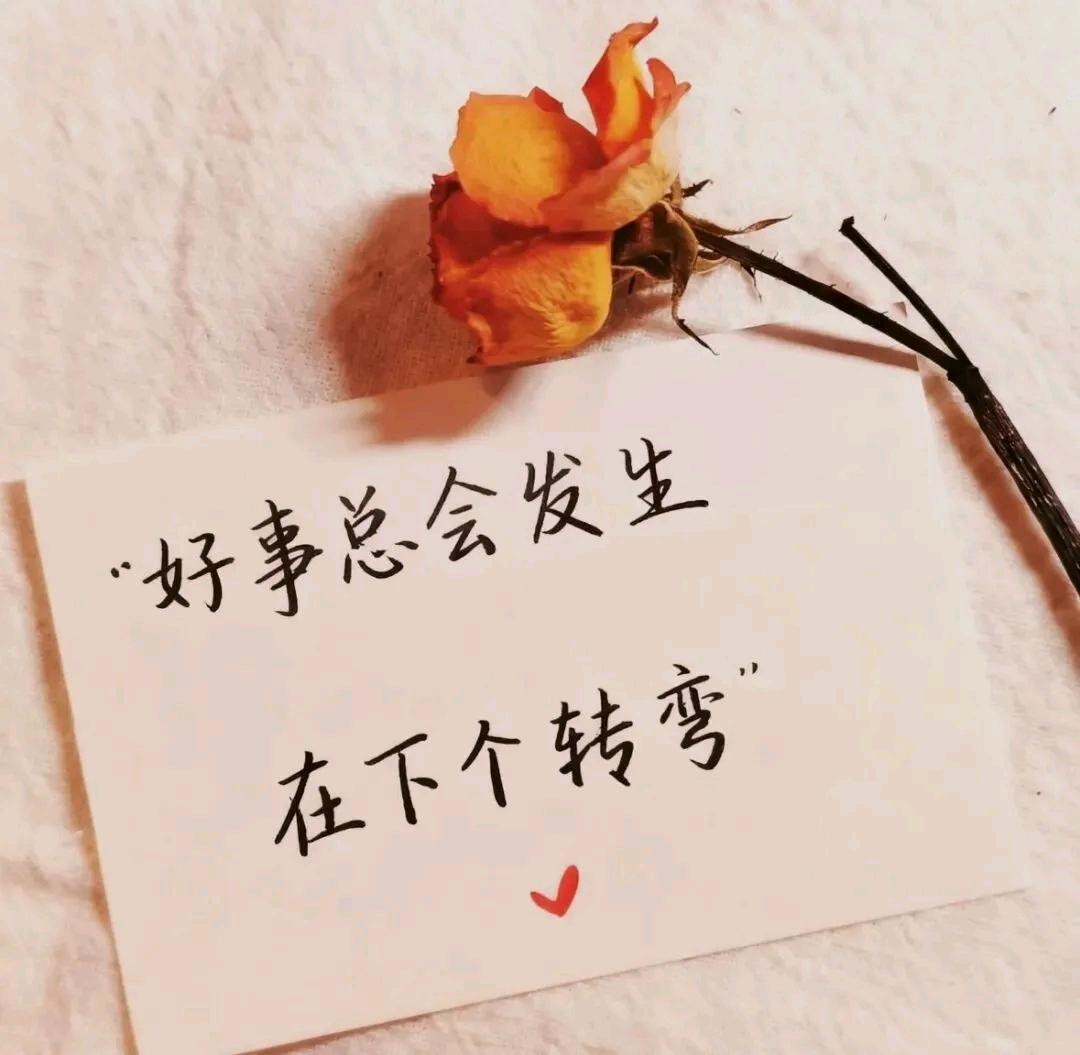 “好事总会发生
在下个转弯”